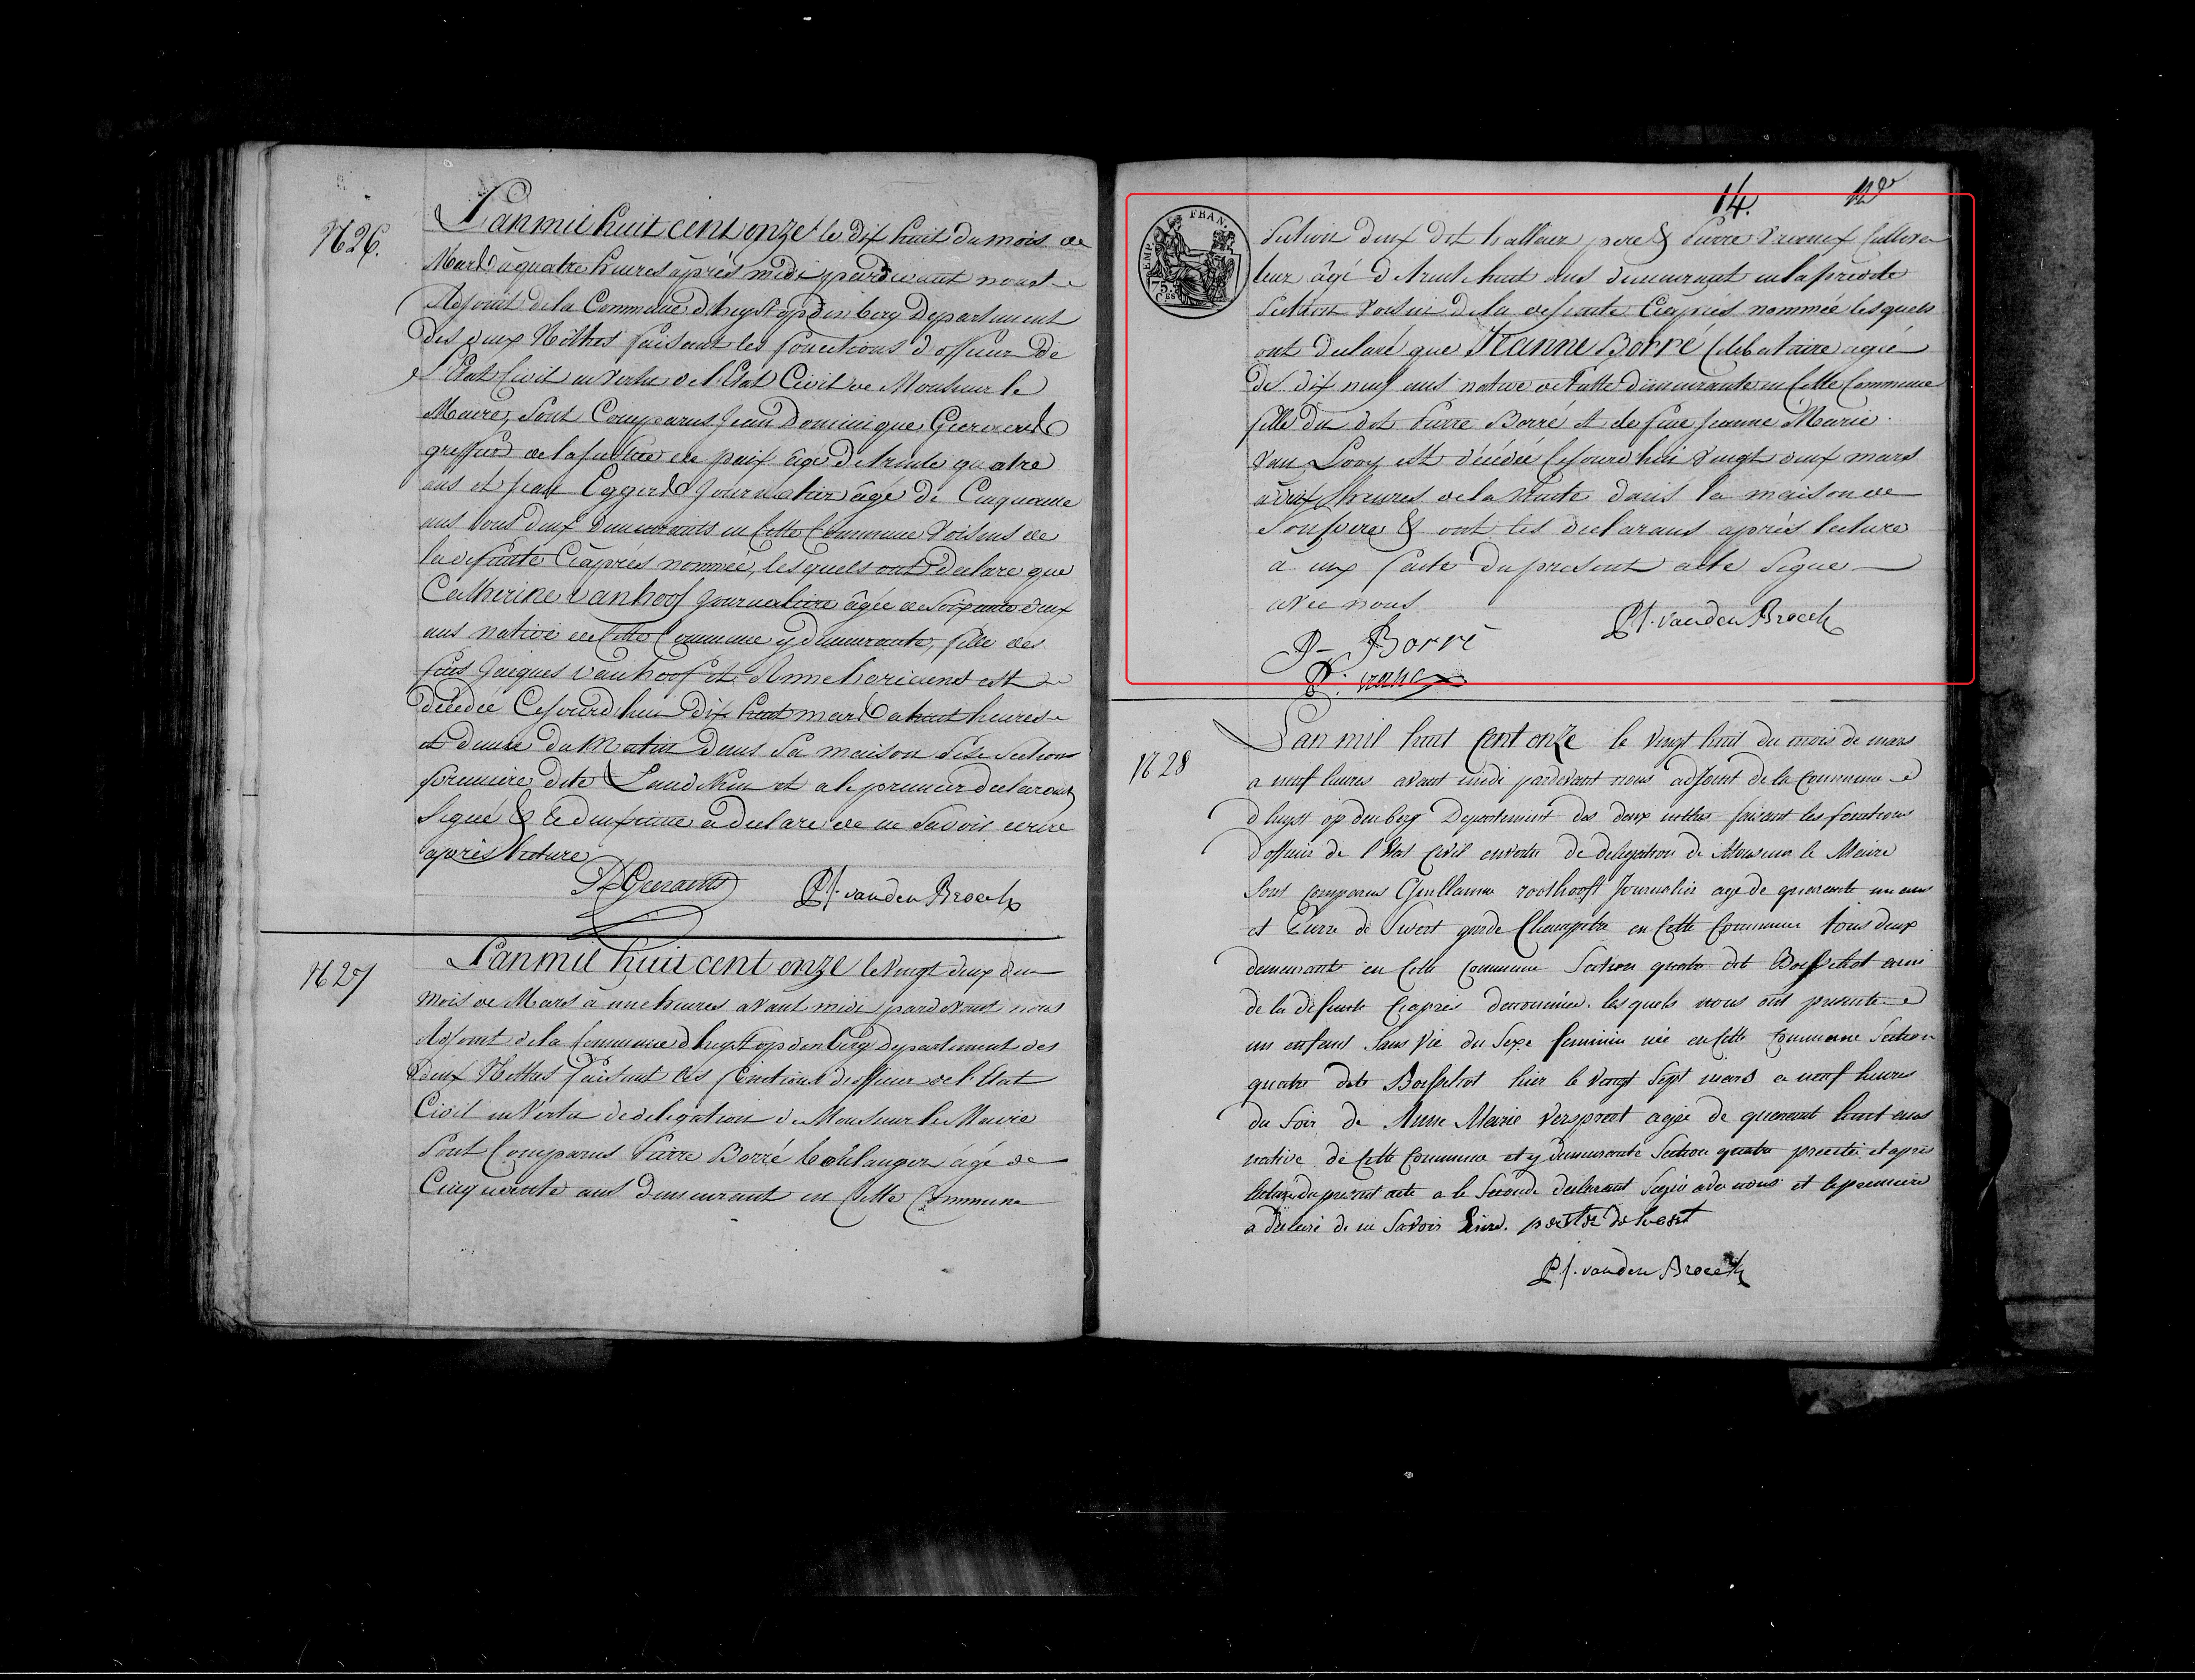 N 26.
L'an mil huit cent onze le dix huit du mois de
Mars à quatre heures après midi pardevant nous
Adjoint de la Commune d'heyst op den berg Departement
des deux Nèthes faisant les fonctions d'officier de
l'Etat Civil en vertu de l'Etat Civil de Monsieur le
Maire, sont Comparus Jean Dominique Geeraerds
greffier de la justice de paix âgé de trente quatre
ans et Jean Eggerds journalier âgé de Cinquante
ans tous deux demeurants en Cette Commune Voisins de
la defunte Ciaprès nommée, lesquels ont declaré que
Catherine Vanhoof journaliere âgée de soixante deux
ans native de Cette Commune y demeurante, fille des
feus Jacques Vanhoof et Anne est
décédée Cejourd'hui dix huit mars a huit heures
et demie du Matin dans sa maison sise Section
première dite et a le premier declarant
signé & le deuxieme a declaré de ne savoir ecrire
après lecture
Geeraerds PJ. vanden Broeck
N 27
L'an mil huit cent onze le vingt deux du
mois de Mars à onze heures avant midi pardevant nous
Adjoint de la Commune d'heyst op den berg Departement des
deux Nèthes faisant les fonctions d'officier de l'Etat
Civil en Vertu de delegation de Monsieur le Maire
sont Comparus Pierre Borré boulanger âgé de
Cinquante ans demeurant en Cette Commune
14. 12
Section deux dit hallaer pere & Pierre cultiva
teur âgé de trente huit ans demeurant en la predite
Section voisin de la defunte Ciaprès nommée lesquels
ont declaré que Jeanne Borré Celibataire agée
de dix neuf ans native de Putte demeurante en Cette Commune
fille du dit Pierre Borré et de feue Jeanne Marie
Van Looy est décédée Cejourd'hui vingt deux mars
à dix heures de la dans la maison de
son pere & ont les declarans après lecture
a eux faite du present acte signé
avec nous
P. Borré PJ. vanden Broeck
N 28
L'an mil huit Cent onze le vingt huit du mois de mars
a neuf heures avant midi pardevant nous adjoint de la Commune
d'heyst op den berg Departement des deux nethes faisant les fonctions
d'officier de l'Etat Civil en vertu de delegation de Monsieur le Maire
sont comparus Guillaume roothooft Journalier age de quarante un ans
et Pierre de Weert garde Champetre en Cette Commune tous deux
demeurants en Cette Commune Section quatre dit Boisschot amis
de la defunte Ciapres denommée. lesquels nous ont presenté
un enfant sans Vie du Sexe feminin née en Cette Commune Section
quatre dite Boisschot hier le vingt sept mars a neuf heures
du soir de Anne Marie Verspreet agée de quarante huit ans
native de Cette Commune et y demeurante Section quatre predite et apres
lecture du present acte a le second declarant signé avec nous et le premier
a declaré de ne savoir Ecrire. peeter de weert
PJ. vanden Broeck